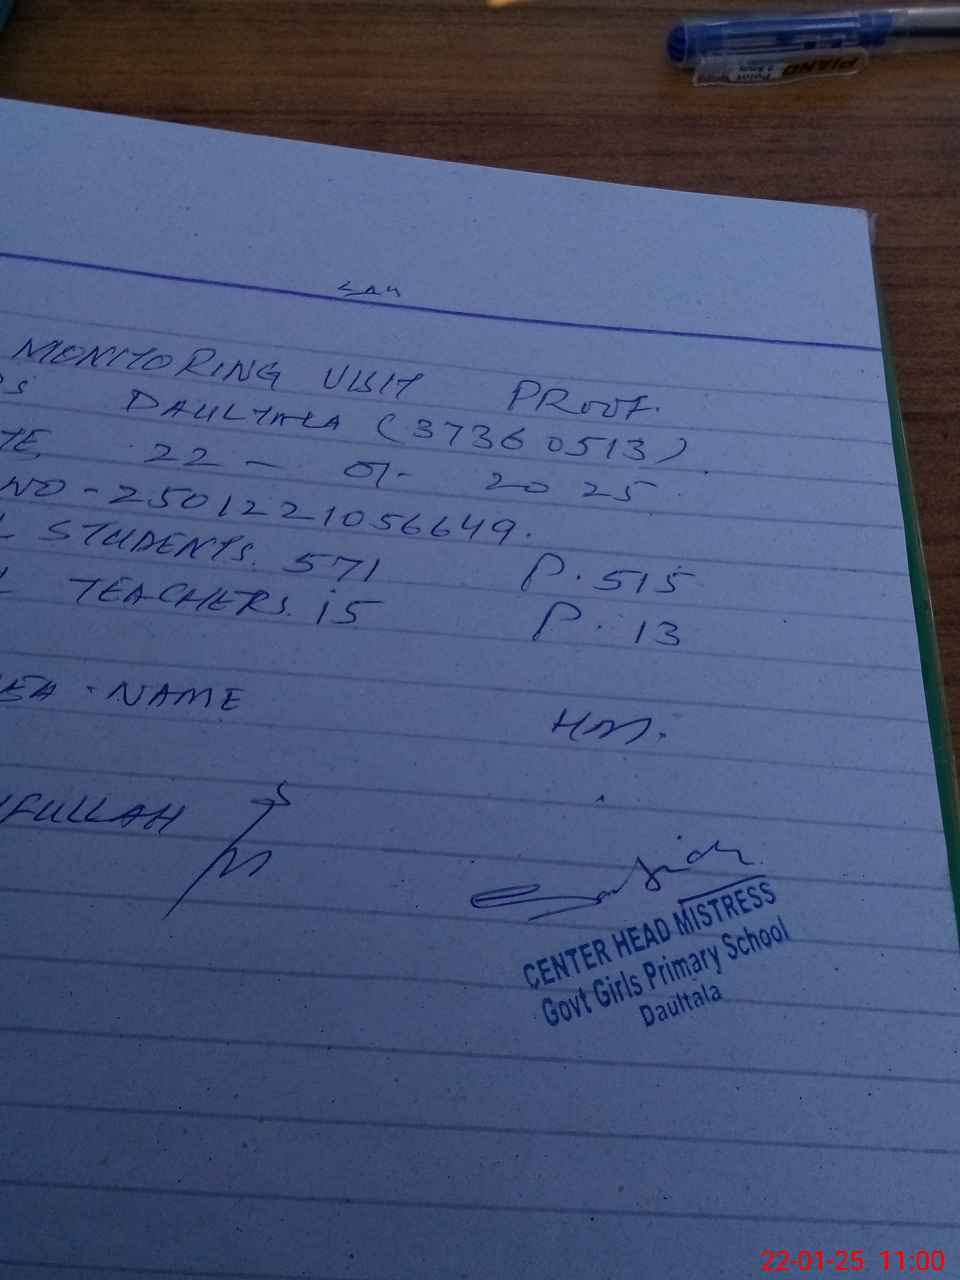 PIANO
Point
MONITORING VISIT PROOF.
PS DAULTALA (37360513).
TE, 22 - 01- 2025.
NO - 2501221056649.
L STUDENTS. 571 P. 515
L TEACHERS. 15 P. 13
EA - NAME HM.
FULLAH
CENTER HEAD MISTRESS
Govt Girls Primary School
Daultala
22-01-25 11:00